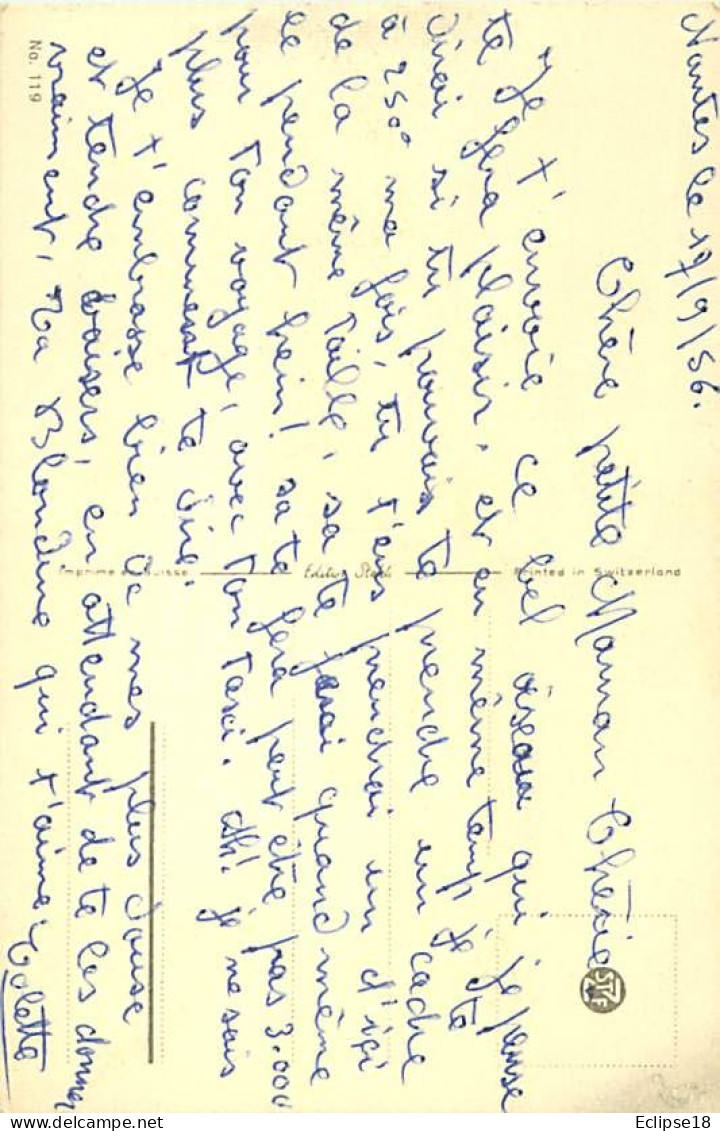 Nantes le 17/9/56.
Chère petite Maman Chérie
Je t'envoie ce bel oiseau qui je pense
te fera plaisir. et en même temp je te
dirai si tu pouvais te prendre un cadre
à 2500 ma fois, tu t'en prendrai un d'ici
de la même taille, sa te ferai quand même
le pendant hein! sa te fera peut être pas 3.000
pour ton voyage, avec ton taxi. Ah! je ne sais
plus comment te dire.
Je t'embrasse bien de mes plus douse
et tendre baisers, en attendant de te les donner
vraiment, Ta Blondine qui t'aime, Colette
No. 119
Imprimé en Suisse
Edition Stehli
Printed in Switzerland
Eclipse18